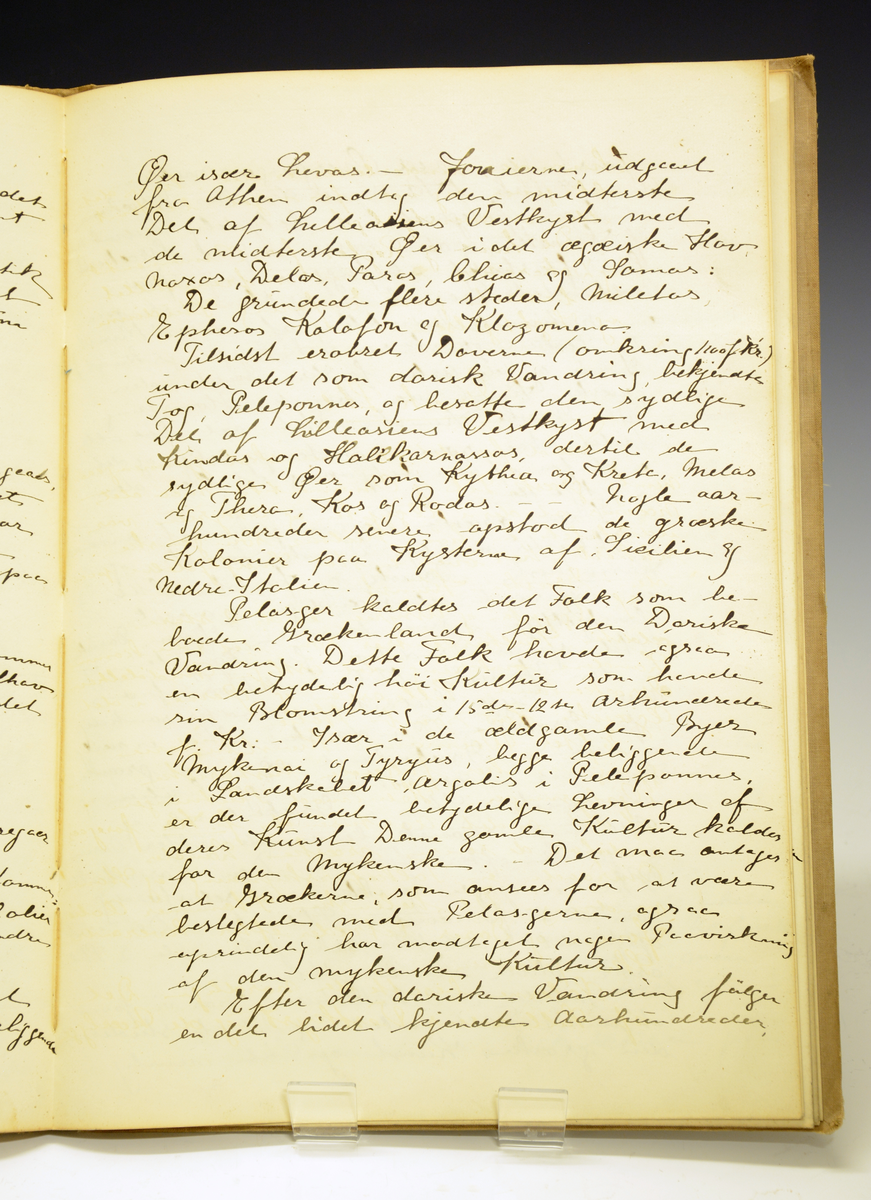 det
geaes,
et
paa
ommer
det
regaer
eliggende
Øer især Levas. — Jonierne, udgaaet
fra Athen indtog den midterste
Del af Lilleasiens Vestkyst med
de midterste Øer i det ægæiske Hav,
Naxos, Delos, Paros, Chios og Samos:
De grundede flere steder, Miletos,
Ephesos Kolofon og Klazomena.
Tilsidst erobret Doverne (omkring 1100 f Kr.)
under det som dorisk Vandring bekjendte
Tog, Peleponnes, og besatte den sydlige
Del af Lilleasiens Vestkyst med
Kindos og Halikarnassos, dertil de
sydlige Øer som Kythea og Kreta, Melos
og Thera, Kos og Rodos. — — Nogle aar-
hundreder senere opstod de græske
Kolonier paa Kysterne af Sicilien og
Nedre-Italien.
Pelasger kaldtes det Folk som be-
boede Grækenland før den Doriske
Vandring. Dette Folk havde ogsaa
en betydelig høi Kultur som havde
sin Blomstring i 15de-12te Arhundrede
f. Kr: — Især i de ældgamle Byer
Mykenai og Tyryus, begge beliggende
i Landskabet Argolis i Peleponnes,
er der fundet betydelige Levninger af
deres Kunst Denne gamle Kultur kaldes
for den Mykenske. — Det maa antages
at Grækerne, som ansees for at være
beslegtede med Pelasgerne, ogsaa
oprindelig har modtaget nogen Paavirkning
af den mykenske Kultur.
Efter den doriske Vandring følger
en del lidet kjendte Aarhundreder,